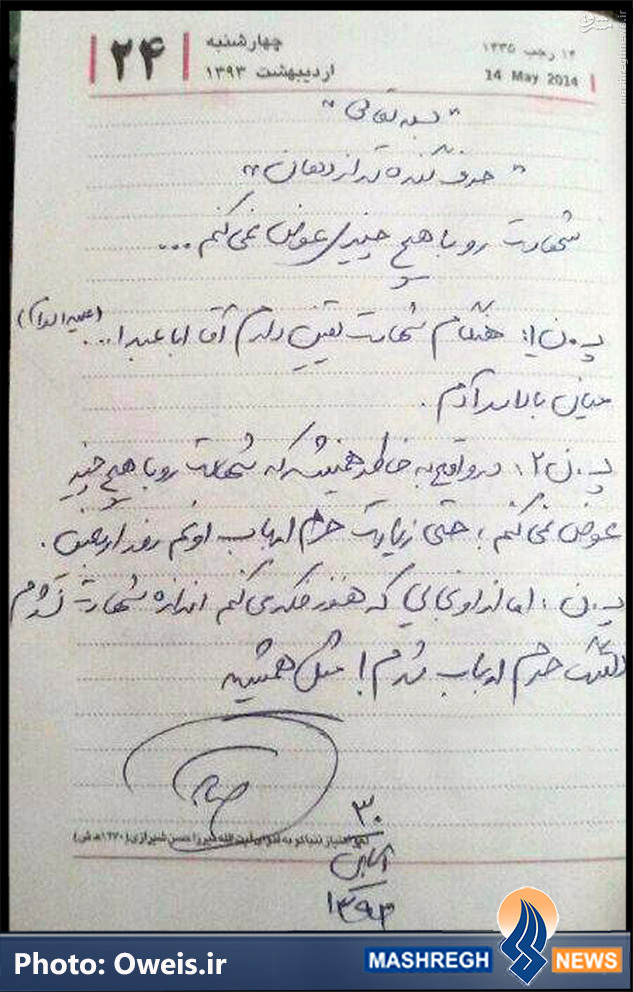 ۲۴
چهارشنبه
اردیبهشت ۱۳۹۳
۱۴ رجب ۱۴۳۵
14 May 2014
mashreghnews.ir
"بسمه تعالی"
"حرف گنده تر از دهان"
شهادت رو با هیچ چیزی عوض نمی کنم ...
پ.ن۱: هنگام شهادت یقین دارم آقا اباعبدا... (علیه السلام)
میان بالا سرم.
پ.ن۲: در واقع به خاطر همینه که شهادت رو با هیچ چیز
عوض نمی کنم، حتی زیارت حرم ارباب اونم روز اربعین.
پ.ن: اما از اونجایی که هنوز فکر می کنم اندازه شهادت نشدم
دلتنگ حرم ارباب شدم! مثل همیشه
لغو امتیاز تنباکو به فتوای آیت الله میرزا حسن شیرازی (۱۲۷۰ ه ش)
۳۰
آبان
۱۳۹۳
Photo: Oweis.ir
MASHREGH NEWS